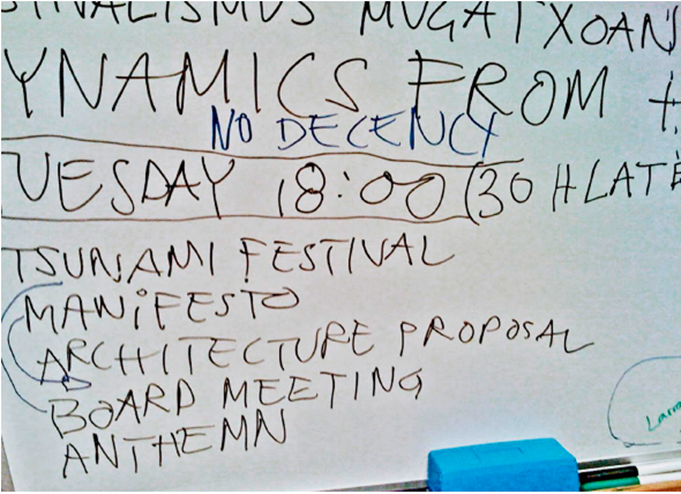 STIVALISMUS MUGATXOAN
YNAMICS FROM
NO DECENCY
UESDAY 18:00 (30 H LATE
TSUNAMI FESTIVAL
MANIFESTO
ARCHITECTURE PROPOSAL
BOARD MEETING
ANTHEMN